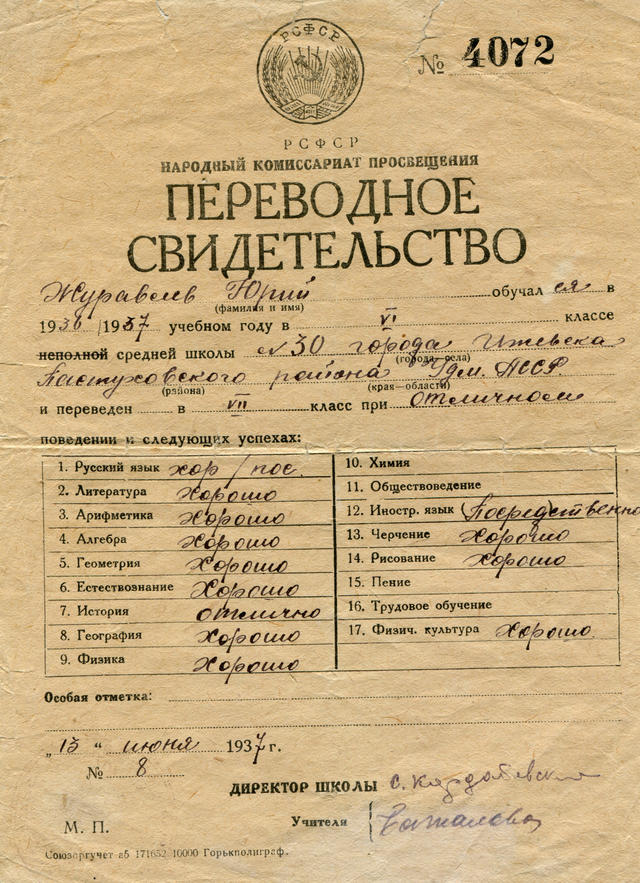 РСФСР
№ 4072
РСФСР
НАРОДНЫЙ КОМИССАРИАТ ПРОСВЕЩЕНИЯ
ПЕРЕВОДНОЕ
СВИДЕТЕЛЬСТВО
Журавель Юрий обучался в
(фамилия и имя)
1936/1937 учебном году в VI классе
неполной средней школы №30 города Ижевска
(города, села)
Пастуховского района Удм. АССР.
(района) (края—области)
и переведен в VII класс при отличном
поведении и следующих успехах:
1. Русский язык хор/пос.
2. Литература Хорошо
3. Арифметика Хорошо
4. Алгебра Хорошо
5. Геометрия Хорошо
6. Естествознание Хорошо
7. История отлично
8. География Хорошо
9. Физика Хорошо
10. Химия
11. Обществоведение
12. Иностр. язык Посредственно
13. Черчение Хорошо
14. Рисование Хорошо
15. Пение
16. Трудовое обучение
17. Физич. культура Хорошо
Особая отметка:
„15“ июня 1937 г.
№ 8
ДИРЕКТОР ШКОЛЫ
Учителя
М. П.
Союзоргучет 171652 10000 Горькполиграф.